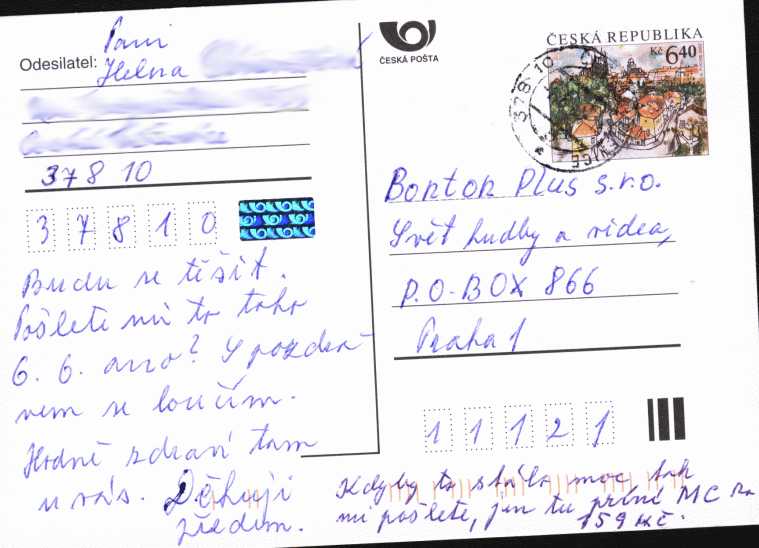 Odesilatel: Paní
Helena
378 10
3 7 8 1 0
Budu se těšit.
Pošlete mi to toho
6. 6. ano? S pozdra-
vem se loučím.
Hodně zdraví tam
u vás. Děkuji
předem.
ČESKÁ POŠTA
ČESKÁ REPUBLIKA
Kč 6,40
378 10
Bonton Plus s.r.o.
Svět hudby a videa,
P.O-BOX 866
Praha 1
1 1 1 2 1
Kdyby to stálo moc, tak
mi pošlete, jen tu první MC za
159 Kč.